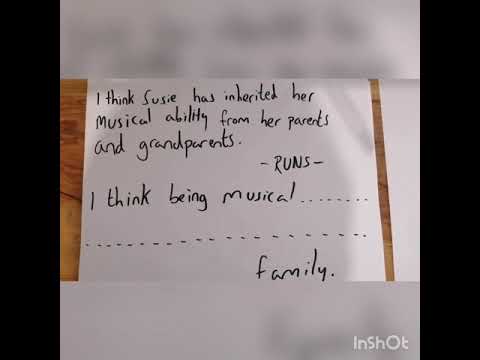 I think Susie has inherited her
musical ability from her parents
and grandparents.
- RUNS -
I think being musical ........
......................
family.
InShOt